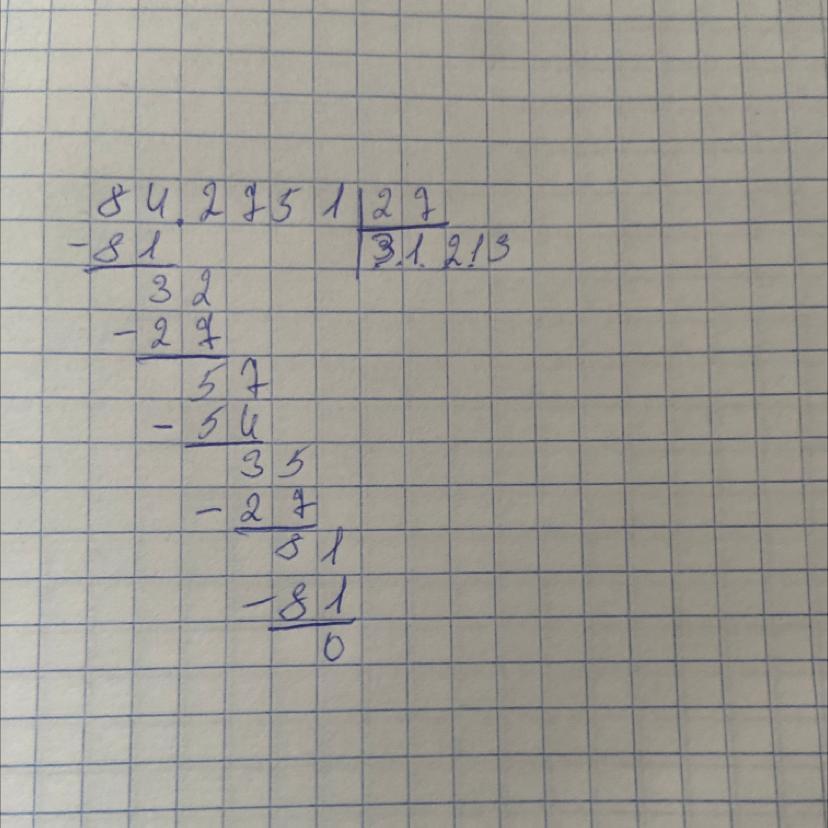 84.2751 27
-81 31213
32
-27
57
-54
35
-27
81
-81
0